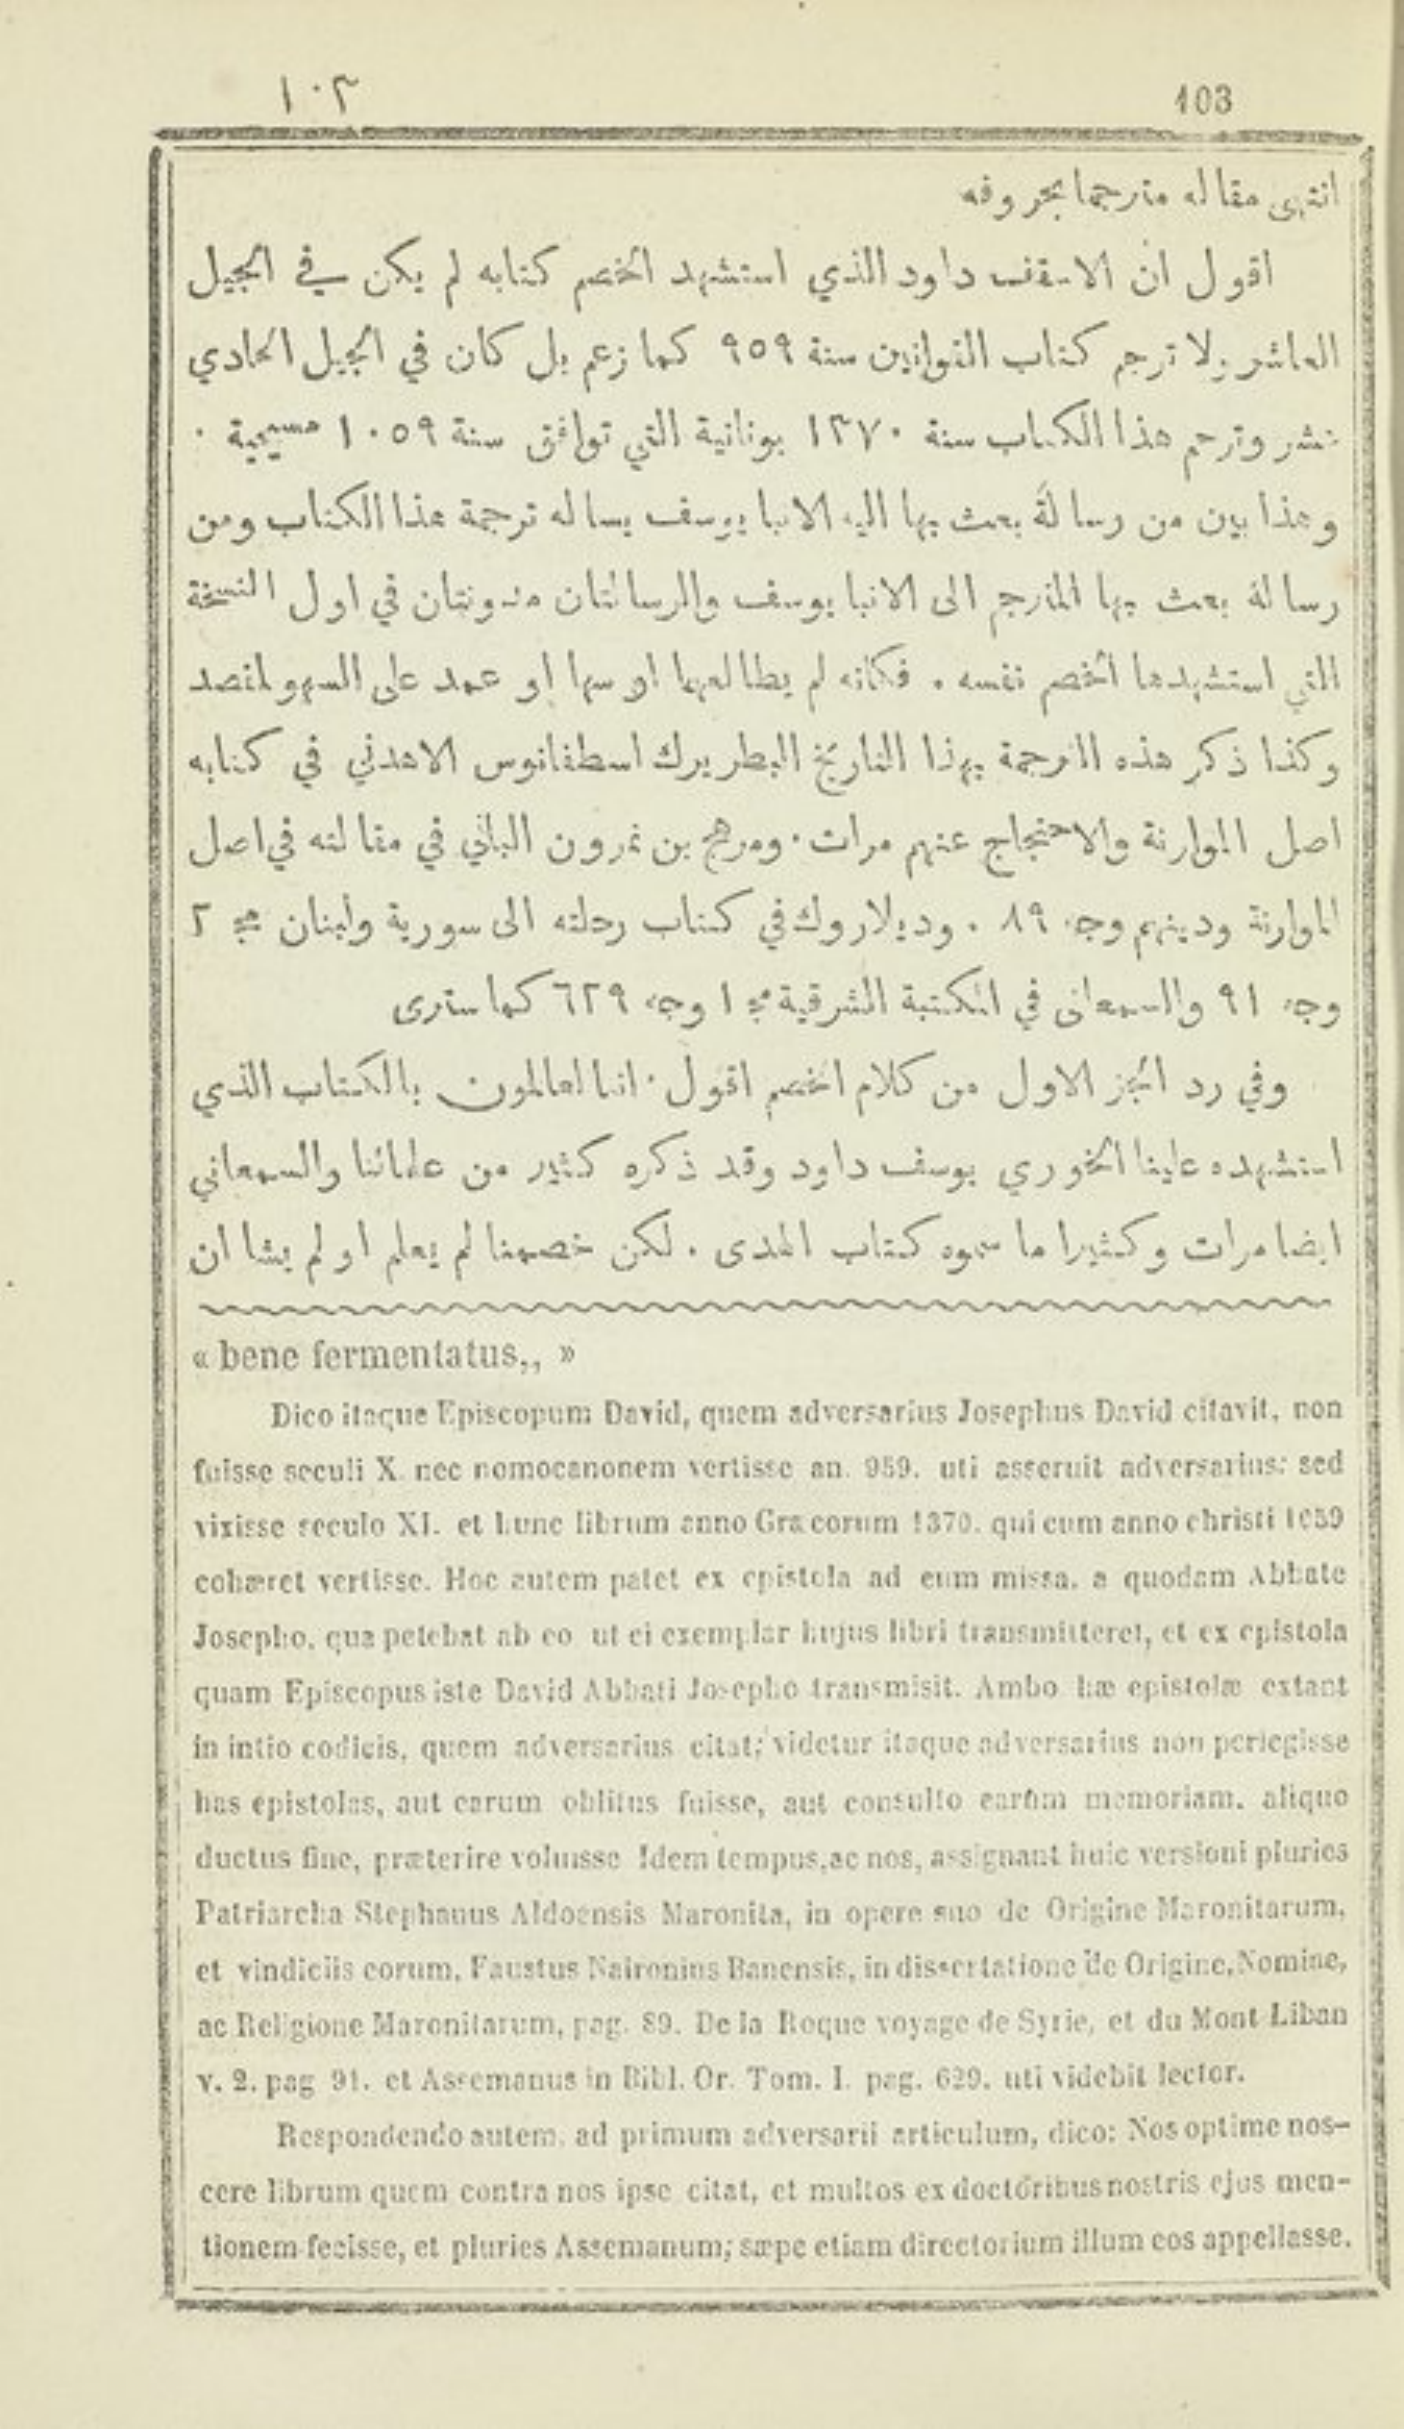 ١٠٣
103
انتهى مقاله مترجما بحروفه
اقول ان الاسقف داود الذي استشهد الخصم كتابه لم يكن في الجيل
العاشر ولا ترجم كتاب القوانين سنة ٩٥٩ كما زعم بل كان في الجيل الحادي
عشر وترجم هذا الكتاب سنة ١٣٧٠ يونانية التي توافق سنة ١٠٥٩ مسيحية ٠
وهذا بين من رسالةً بعث بها اليه الانبا يوسف يساله ترجمة هذا الكتاب ومن
رسالة بعث بها المترجم الى الانبا يوسف والرسالتان مدونتان في اول النسخة
التي استشهدها الخصم نفسه ٠ فكانه لم يطالعهما او سها او عمد على السهو لمقصد
وكذا ذكر هذه الترجمة بهذا التاريخ البطريرك اسطفانوس الاهدني في كتابه
اصل الموارنة والاحتجاج عنهم مرات ٠ ومرهج بن نمرون الباني في مقالته في اصل
الموارنة ودينهم وجه ٨٩ ٠ وديلاروك في كتاب رحلته الى سورية ولبنان مج ٢
وجه ٩١ والسمعاني في المكتبة الشرقية مج ١ وجه ٦٢٩ كما سترى
وفي رد الجز الاول من كلام الخصم اقول ٠ اننا لعالمون بالكتاب الذي
استشهده علينا الخوري يوسف داود وقد ذكره كثير من علمائنا والسمعاني
ايضا مرات وكثيرا ما سموه كتاب الهدى ٠ لكن خصمنا لم يعلم او لم يشا ان
« bene fermentatus,, »
Dico itaque Episcopum David, quem adversarius Josephus David citavit, non
fuisse seculi X. nec nomocanonem vertisse an. 959. uti asseruit adversarius: sed
vixisse seculo XI. et hunc librum anno Græcorum 1370. qui cum anno christi 1059
cohæret vertisse. Hoc autem patet ex epistola ad eum missa. a quodam Abbate
Josepho, qua petebat ab eo ut ei exemplar hujus libri transmitteret, et ex epistola
quam Episcopus iste David Abbati Josepho transmisit. Ambo hæ epistolæ extant
in intio codicis, quem adversarius citat; videtur itaque adversarius non perlegisse
has epistolas, aut earum oblitus fuisse, aut consulto earum memoriam. aliquo
ductus fine, præterire voluisse Idem tempus, ac nos, assignant huic versioni pluries
Patriarcha Stephanus Aldoensis Maronita, in opere suo de Origine Maronitarum,
et vindiciis eorum, Faustus Naironius Banensis, in dissertatione de Origine, Nomine,
ac Religione Maronitarum, pag. 89. De la Roque voyage de Syrie, et du Mont Liban
v. 2. pag 91. et Assemanus in Bibl. Or. Tom. I. pag. 629. uti videbit lector.
Respondendo autem. ad primum adversarii articulum, dico: Nos optime nos-
cere librum quem contra nos ipse citat, et multos ex doctoribus nostris ejus men-
tionem fecisse, et pluries Assemanum; sæpe etiam directorium illum eos appellasse.